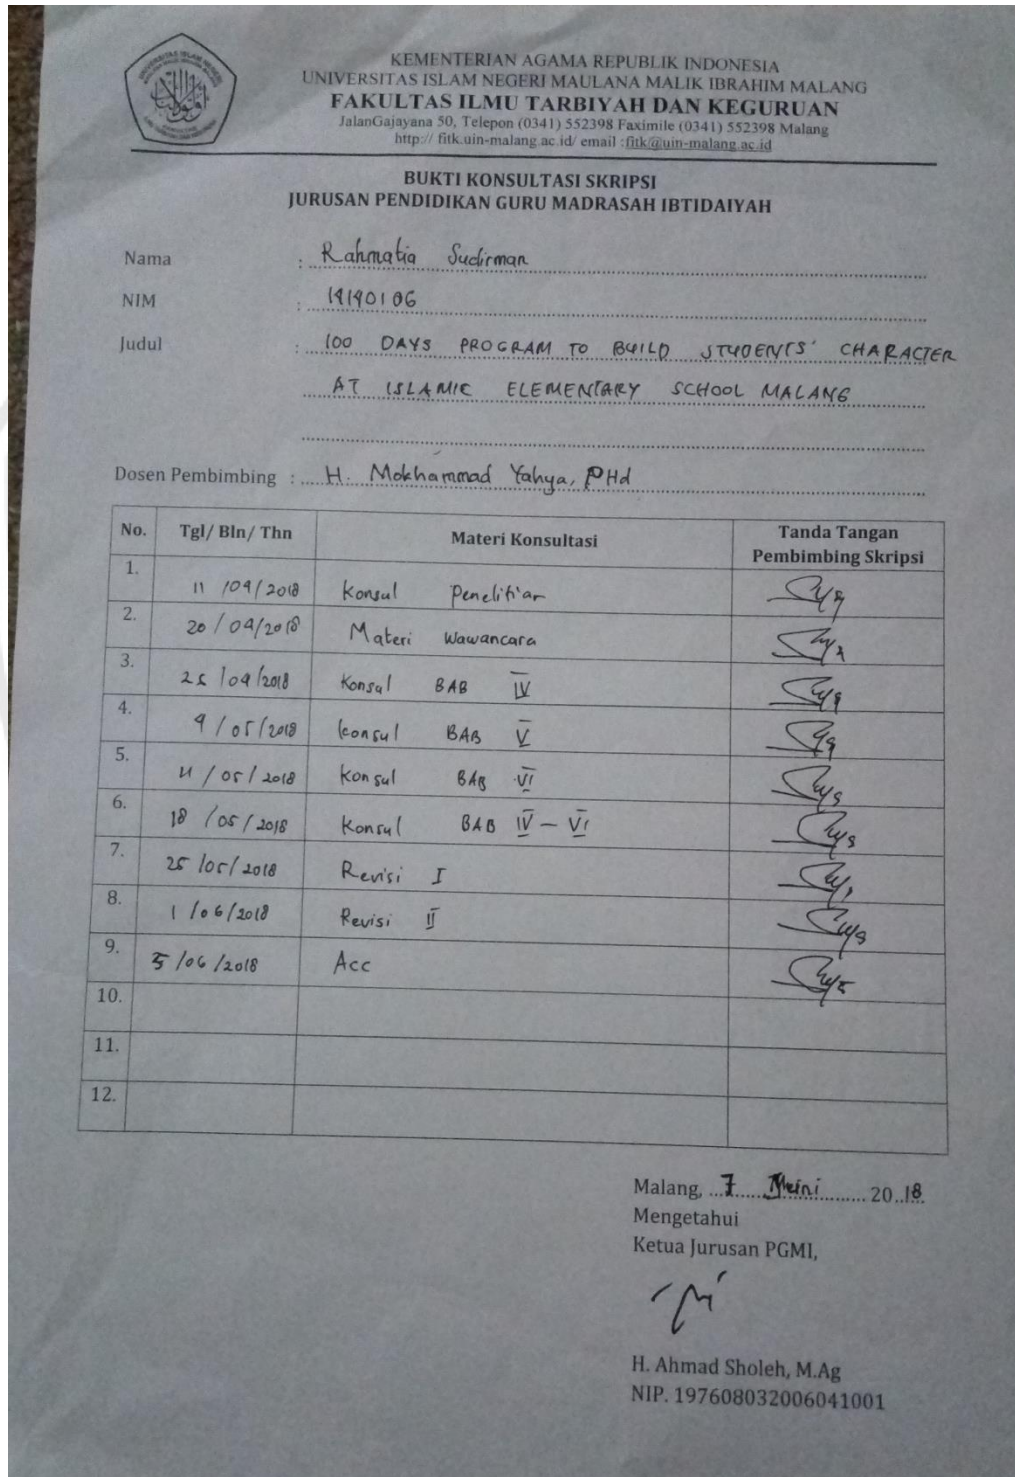 KEMENTERIAN AGAMA REPUBLIK INDONESIA
UNIVERSITAS ISLAM NEGERI MAULANA MALIK IBRAHIM MALANG
FAKULTAS ILMU TARBIYAH DAN KEGURUAN
JalanGajayana 50, Telepon (0341) 552398 Faximile (0341) 552398 Malang
http:// fitk.uin-malang.ac.id/ email :fitk@uin-malang.ac.id
BUKTI KONSULTASI SKRIPSI
JURUSAN PENDIDIKAN GURU MADRASAH IBTIDAIYAH
Nama : Rahmatia Sudirman
NIM : 14140106
Judul : 100 DAYS PROGRAM TO BUILD STUDENTS' CHARACTER
AT ISLAMIC ELEMENTARY SCHOOL MALANG
Dosen Pembimbing : H. Mokhammad Yahya, PHd
No. Tgl/ Bln/ Thn Materi Konsultasi Tanda Tangan Pembimbing Skripsi
1. 11 /04/2018 Konsul Penelitian
2. 20 /04/2018 Materi Wawancara
3. 25 /04/2018 Konsul BAB IV
4. 9 /05/2018 Konsul BAB V
5. 11 /05/2018 Konsul BAB VI
6. 18 /05/2018 Konsul BAB IV – VI
7. 25 /05/2018 Revisi I
8. 1 /06/2018 Revisi II
9. 5 /06/2018 Acc
10.
11.
12.
Malang, 7 20 18
Mengetahui
Ketua Jurusan PGMI,
H. Ahmad Sholeh, M.Ag
NIP. 197608032006041001